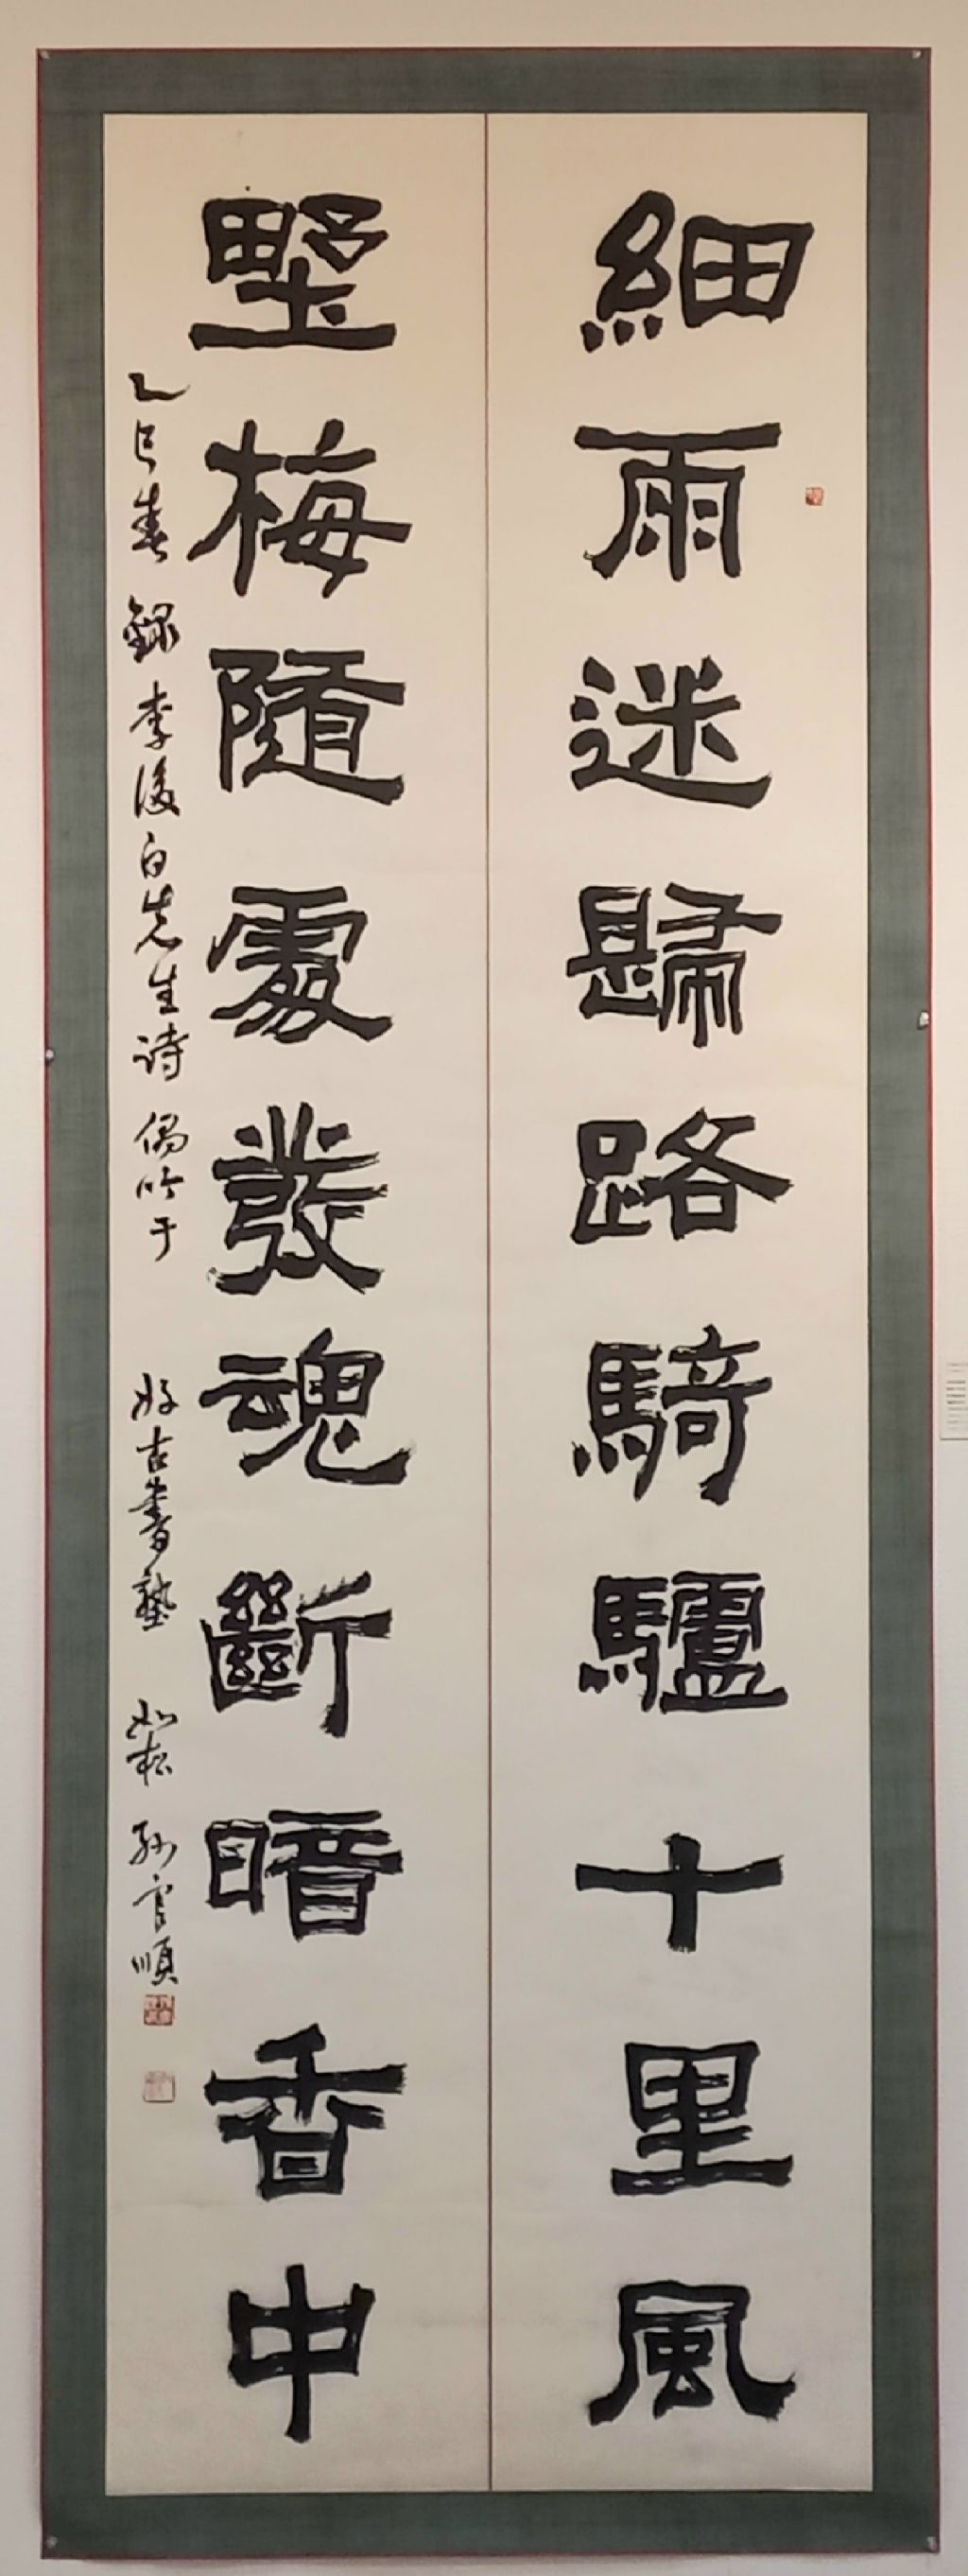 細雨迷歸路騎驢十里風
野梅隨處發魂斷暗香中
乙巳春 錄李後白先生詩 偶吟于 好古書塾 如松 孫官順